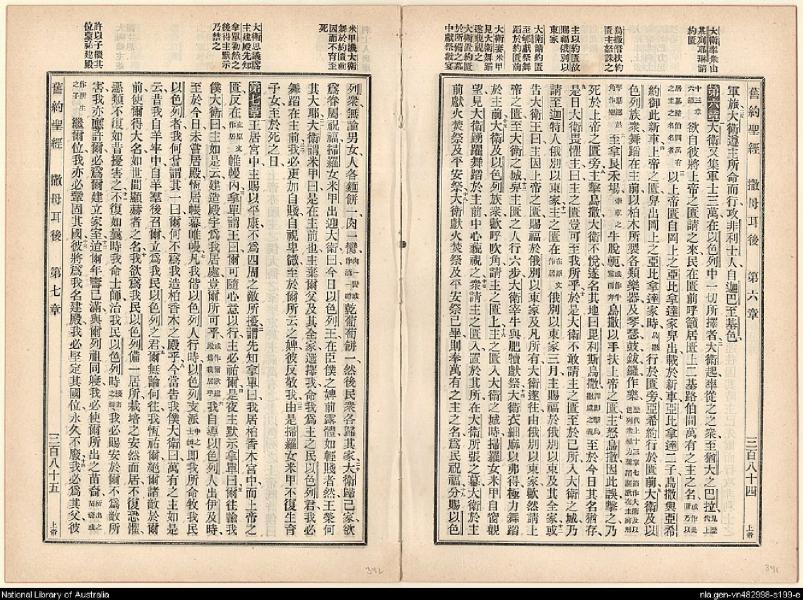 舊約聖經 撒母耳後 第六章 三百八十四 上帝
軍旅大衛遵主所命而行攻非利士人自迦巴至基色
第六章 大衛又集軍士三萬在以色列中一切所擇者大衛起率從之之衆至猶大之巴拉
欲自彼將上帝之匱請之來民在匱前呼籲居匱上二基路伯間萬有之主之名
以上帝之匱自岡上之亞比拿達家舁出載於新車亞比拿達二子烏撒與亞希
約御此新車上帝之匱舁出岡上亞比拿達家時烏撒行於匱旁亞希約行於匱前大衛及以
色列族衆舞蹈在主前以柏木所製各類樂器及琴瑟鼓鈸鑼作樂
至拿艮禾場 牛脫軛 烏撒以手扶上帝之匱主怒烏撒因此誤擊之乃
死於上帝之匱旁主擊烏撒大衛不悅遂名其地曰毘利斯烏撒 至於今日其名猶存
是日大衛畏懼主曰主之匱豈可至我所乎於是大衛不敢請主之匱至於己所入大衛之城乃
請至迦特人俄別以東家主之匱在 俄別以東家三月主賜福於俄別以東及其全家或
告大衛王曰主因上帝之匱賜福於俄別以東家及凡所有大衛遂往由俄別以東家歡然請上
帝之匱至大衛之城舁主匱之人行六步大衛宰牛與肥犢獻祭大衛衣細麻以弗得極力舞蹈
於主前大衛及以色列族衆歡呼吹角請主之匱上主之匱入大衛之城時掃羅女米甲自窗觀
望見大衛踴躍舞蹈於主前中心藐視之衆請主之匱入置於其所在大衛所張之幕大衛於主
前獻火焚祭及平安祭大衛獻火焚祭及平安祭已畢則奉萬有之主之名爲民祝福分賜以色
主以約匱故賜福俄別以東家
米甲譏大衛舞於約匱前因而不育至死
大衛思議爲主建殿先知拿單勸然之後得主默示乃禁之
許以子嗣其位靈祐建殿
列衆無論男女人各麵餅一肉一臠 乾葡萄餅一然後民衆各歸其家大衛歸己家欲
爲眷屬祝福掃羅女米甲出迎大衛曰今日以色列王在臣僕之婢前露體如輕賤者然王榮何
其大耶大衛謂米甲曰是在主前也主棄爾父及其全家選擇我命我爲主之民以色列君我必
舞蹈在主前我必更加自賤自視卑微至於爾所云之婢彼反敬我由是掃羅女米甲不復生育
子女至於死之日
第七章 王居宮中主賜以平康不爲四周之敵所擾謂先知拿單曰我居柏香木宮中而上帝之
匱反在 帷幔內拿單謂王曰爾可隨心意以行主必祐爾是夜主默示拿單曰爾往諭我
僕大衛曰主如是云建造殿宇爲我居處豈爾所可乎 我自導以色列人出伊及時
至於今日未嘗居殿恆居帳幕帷幔凡我偕以色列人行時以色列支派 卽我所命牧我民
以色列者我何嘗謂其一曰爾何不爲我造柏香木之殿乎今當告我僕大衛曰萬有之主如是
云昔我自羊牢中自羊羣後召爾立爲我民以色列之君爾無論何往我恆祐爾絕爾諸敵於爾
前使爾得大名如世間顯赫者之名我欲爲我民以色列備一居所栽培之安然而居不復恐懼
惡類不復如昔擾害之不復如我時命士師治我民以色列時 我必賜安於爾不爲敵所
害我亦應許爾必爲爾建立家室迨爾年壽已滿與爾列祖同寢我必使爾所出之苗裔
繼爾位我亦必鞏固其國彼將爲我名建殿我必堅定其國位永久不廢我必爲其父彼
舊約聖經 撒母耳後 第七章 三百八十五 上帝
392
391
National Library of Australia
nla.gen-vn482998-s199-e